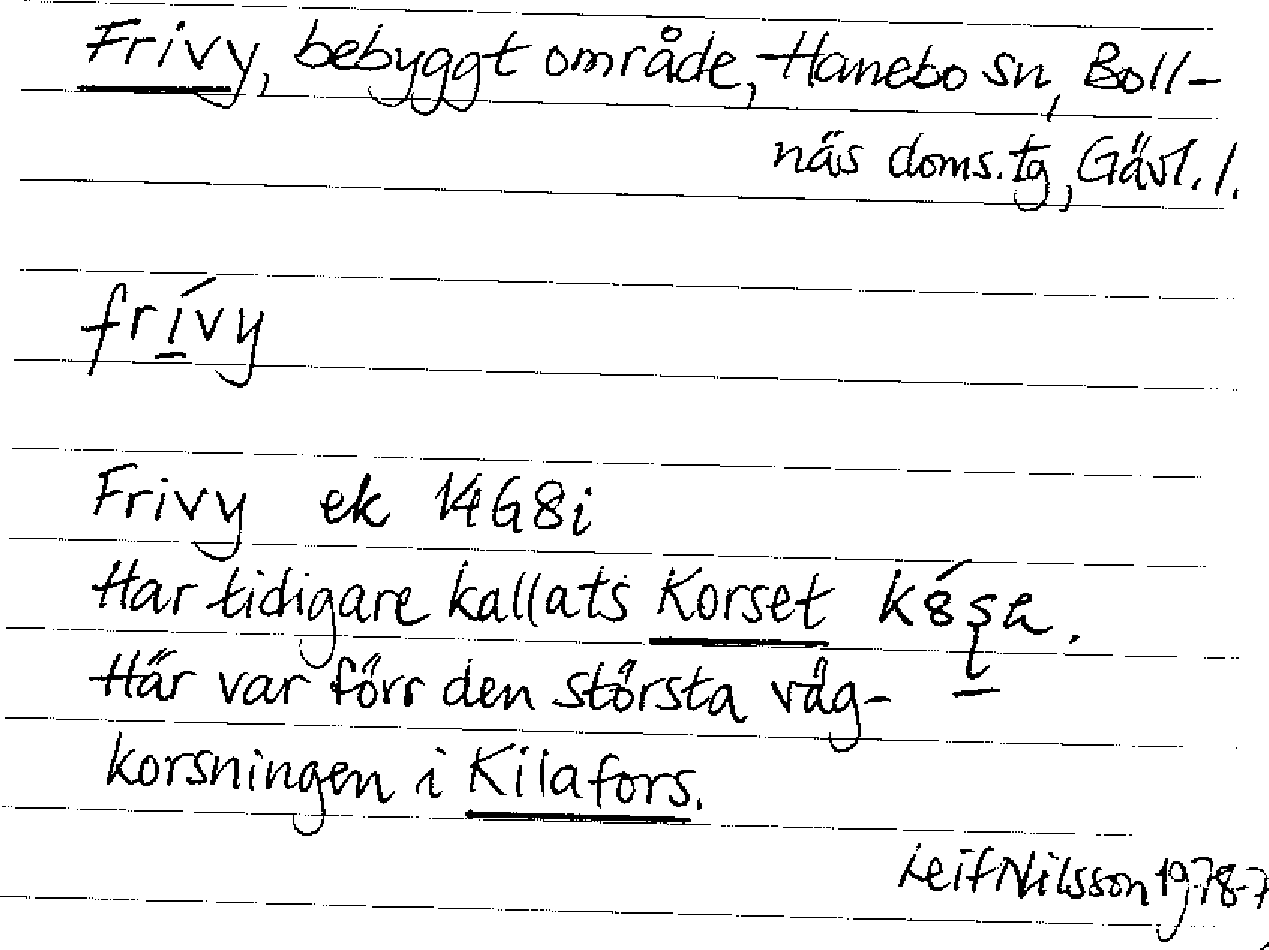 Frivy, bebyggt område, Hanebo sn, Boll-
näs doms.tg, Gävl.l.
frívy
Frivy ek 14G8i
Har tidigare kallats Korset
Här var förr den största väg-
korsningen i Kilafors.
Leif Nilsson 1978-7